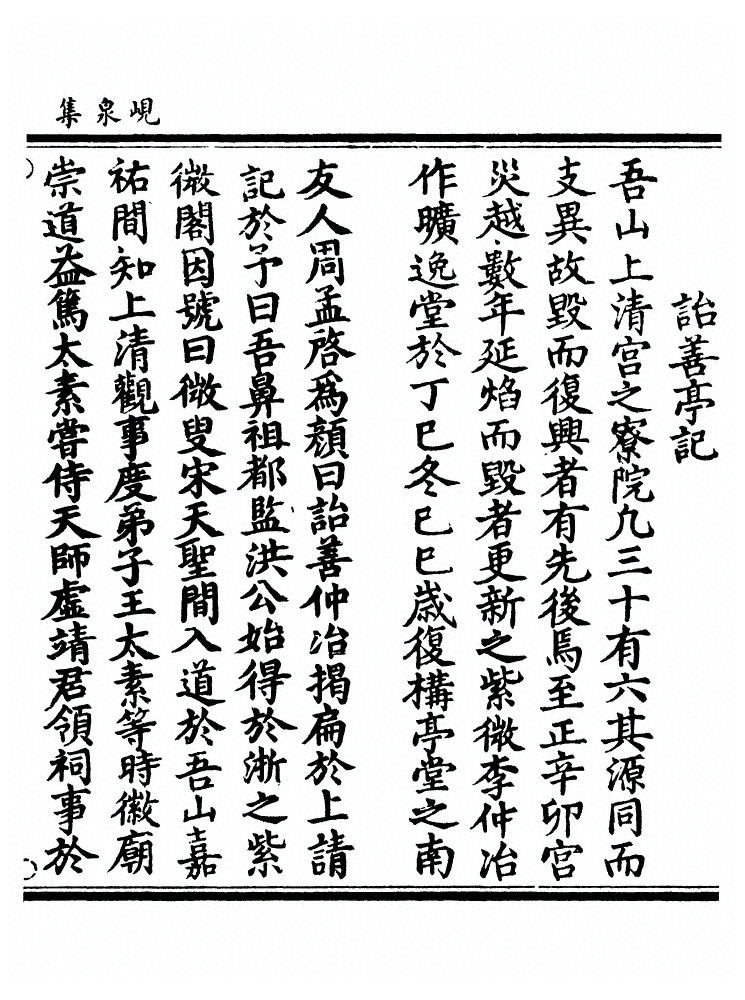 峴泉集
詒善亭記
吾山上清宫之寮院九三十有六其源同而
支異故毀而復興者有先後焉至正辛卯宫
災越數年延焰而毀者更新之紫微李仲冶
作曠逸堂於丁巳冬巳巳嵗復構亭堂之南
友人周孟啓為顔曰詒善仲冶揭扁於上請
記於予曰吾鼻祖都監洪公始得於浙之紫
微閣因號曰微叟宋天聖間入道於吾山嘉
祐間知上清觀事度弟子王太素等時徽廟
崇道益篤太素嘗侍天師虛靖君領祠事於